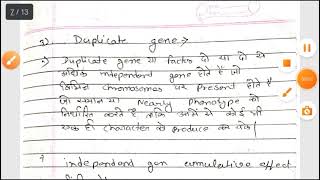 2/13
3) Duplicate gene :->
Duplicate gene या factor दो या दो से
अधिक independent gene होते हैं जो
विभिन्न chromosomes पर present होते हैं
जो समान या Nearly Phenotype को
निर्धारित करते हैं ताकि उनमें से कोई भी
एक ही character को produce कर सके।
independent gen cumulative effect